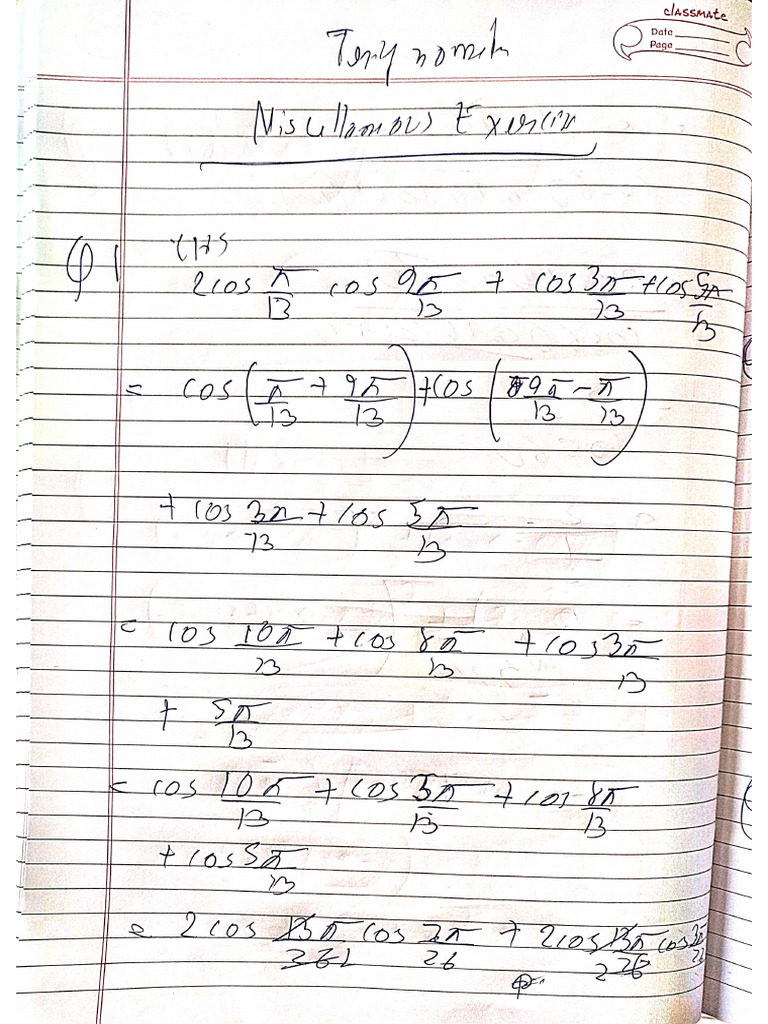 classmate
Date
Page
Miscellaneous Exercise
Q1 LHS
2cos π/13 cos 9π/13 + cos 3π/13 + cos 5π/13
= cos (π/13 + 9π/13) + cos (9π/13 - π/13)
+ cos 3π/13 + cos 5π/13
= cos 10π/13 + cos 8π/13 + cos 3π/13
+ 5π/13
= cos 10π/13 + cos 3π/13 + cos 8π/13
+ cos 5π/13
= 2cos 13π/26 cos 7π/26 + 2cos 13π/26 cos 3π/26